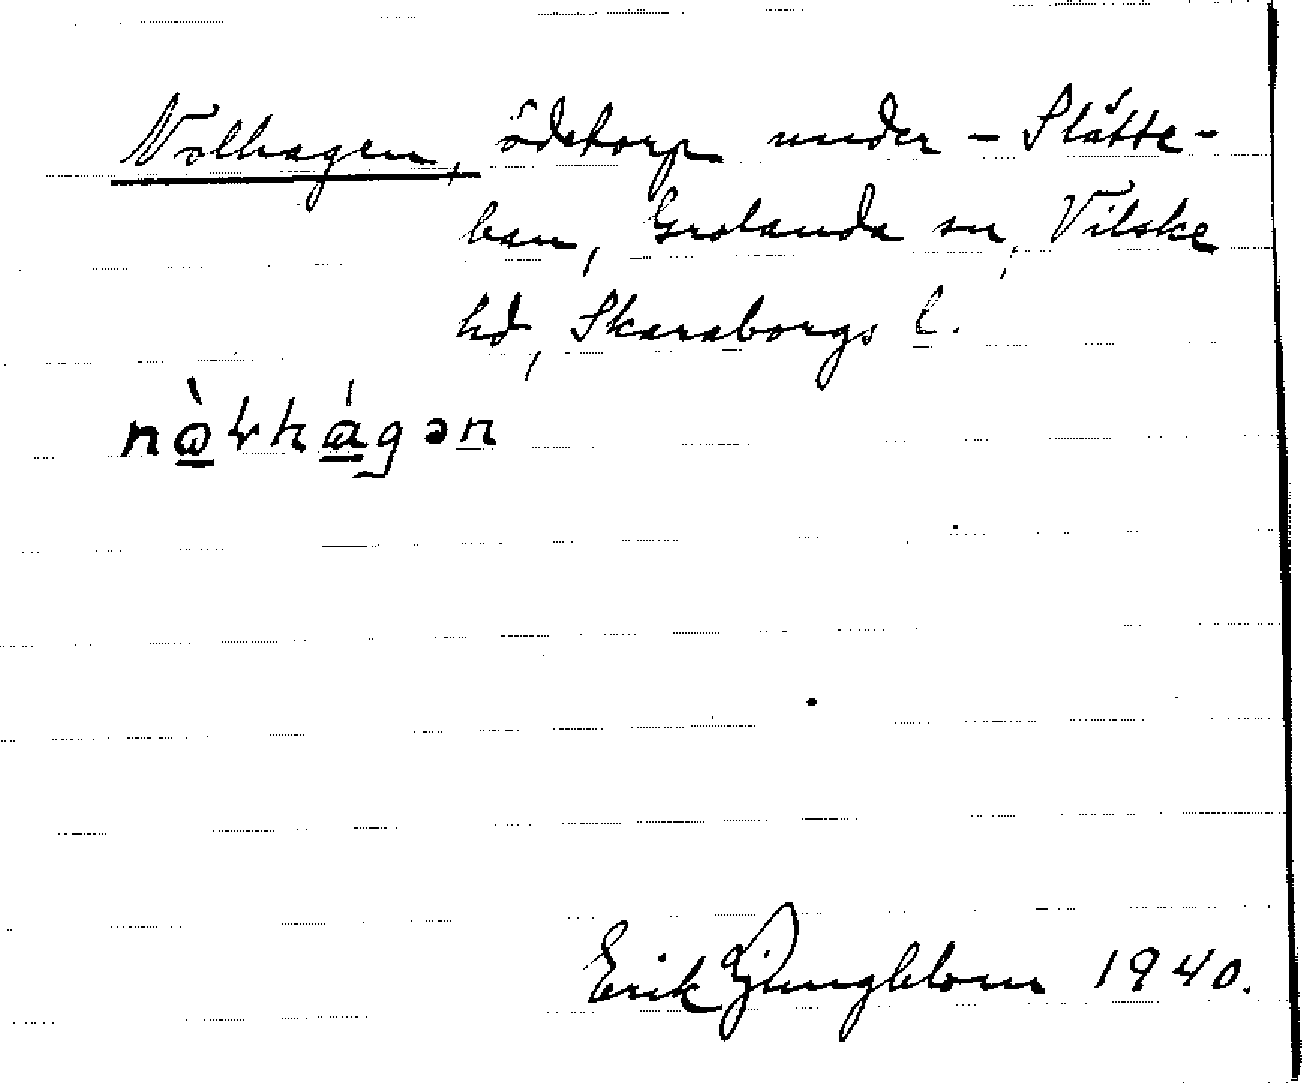 Nolhagen, ödetorp under - Slätte-
ban, Grolanda sn, Vilske
hd, Skaraborgs l.
Erik Ljungblom 1940.